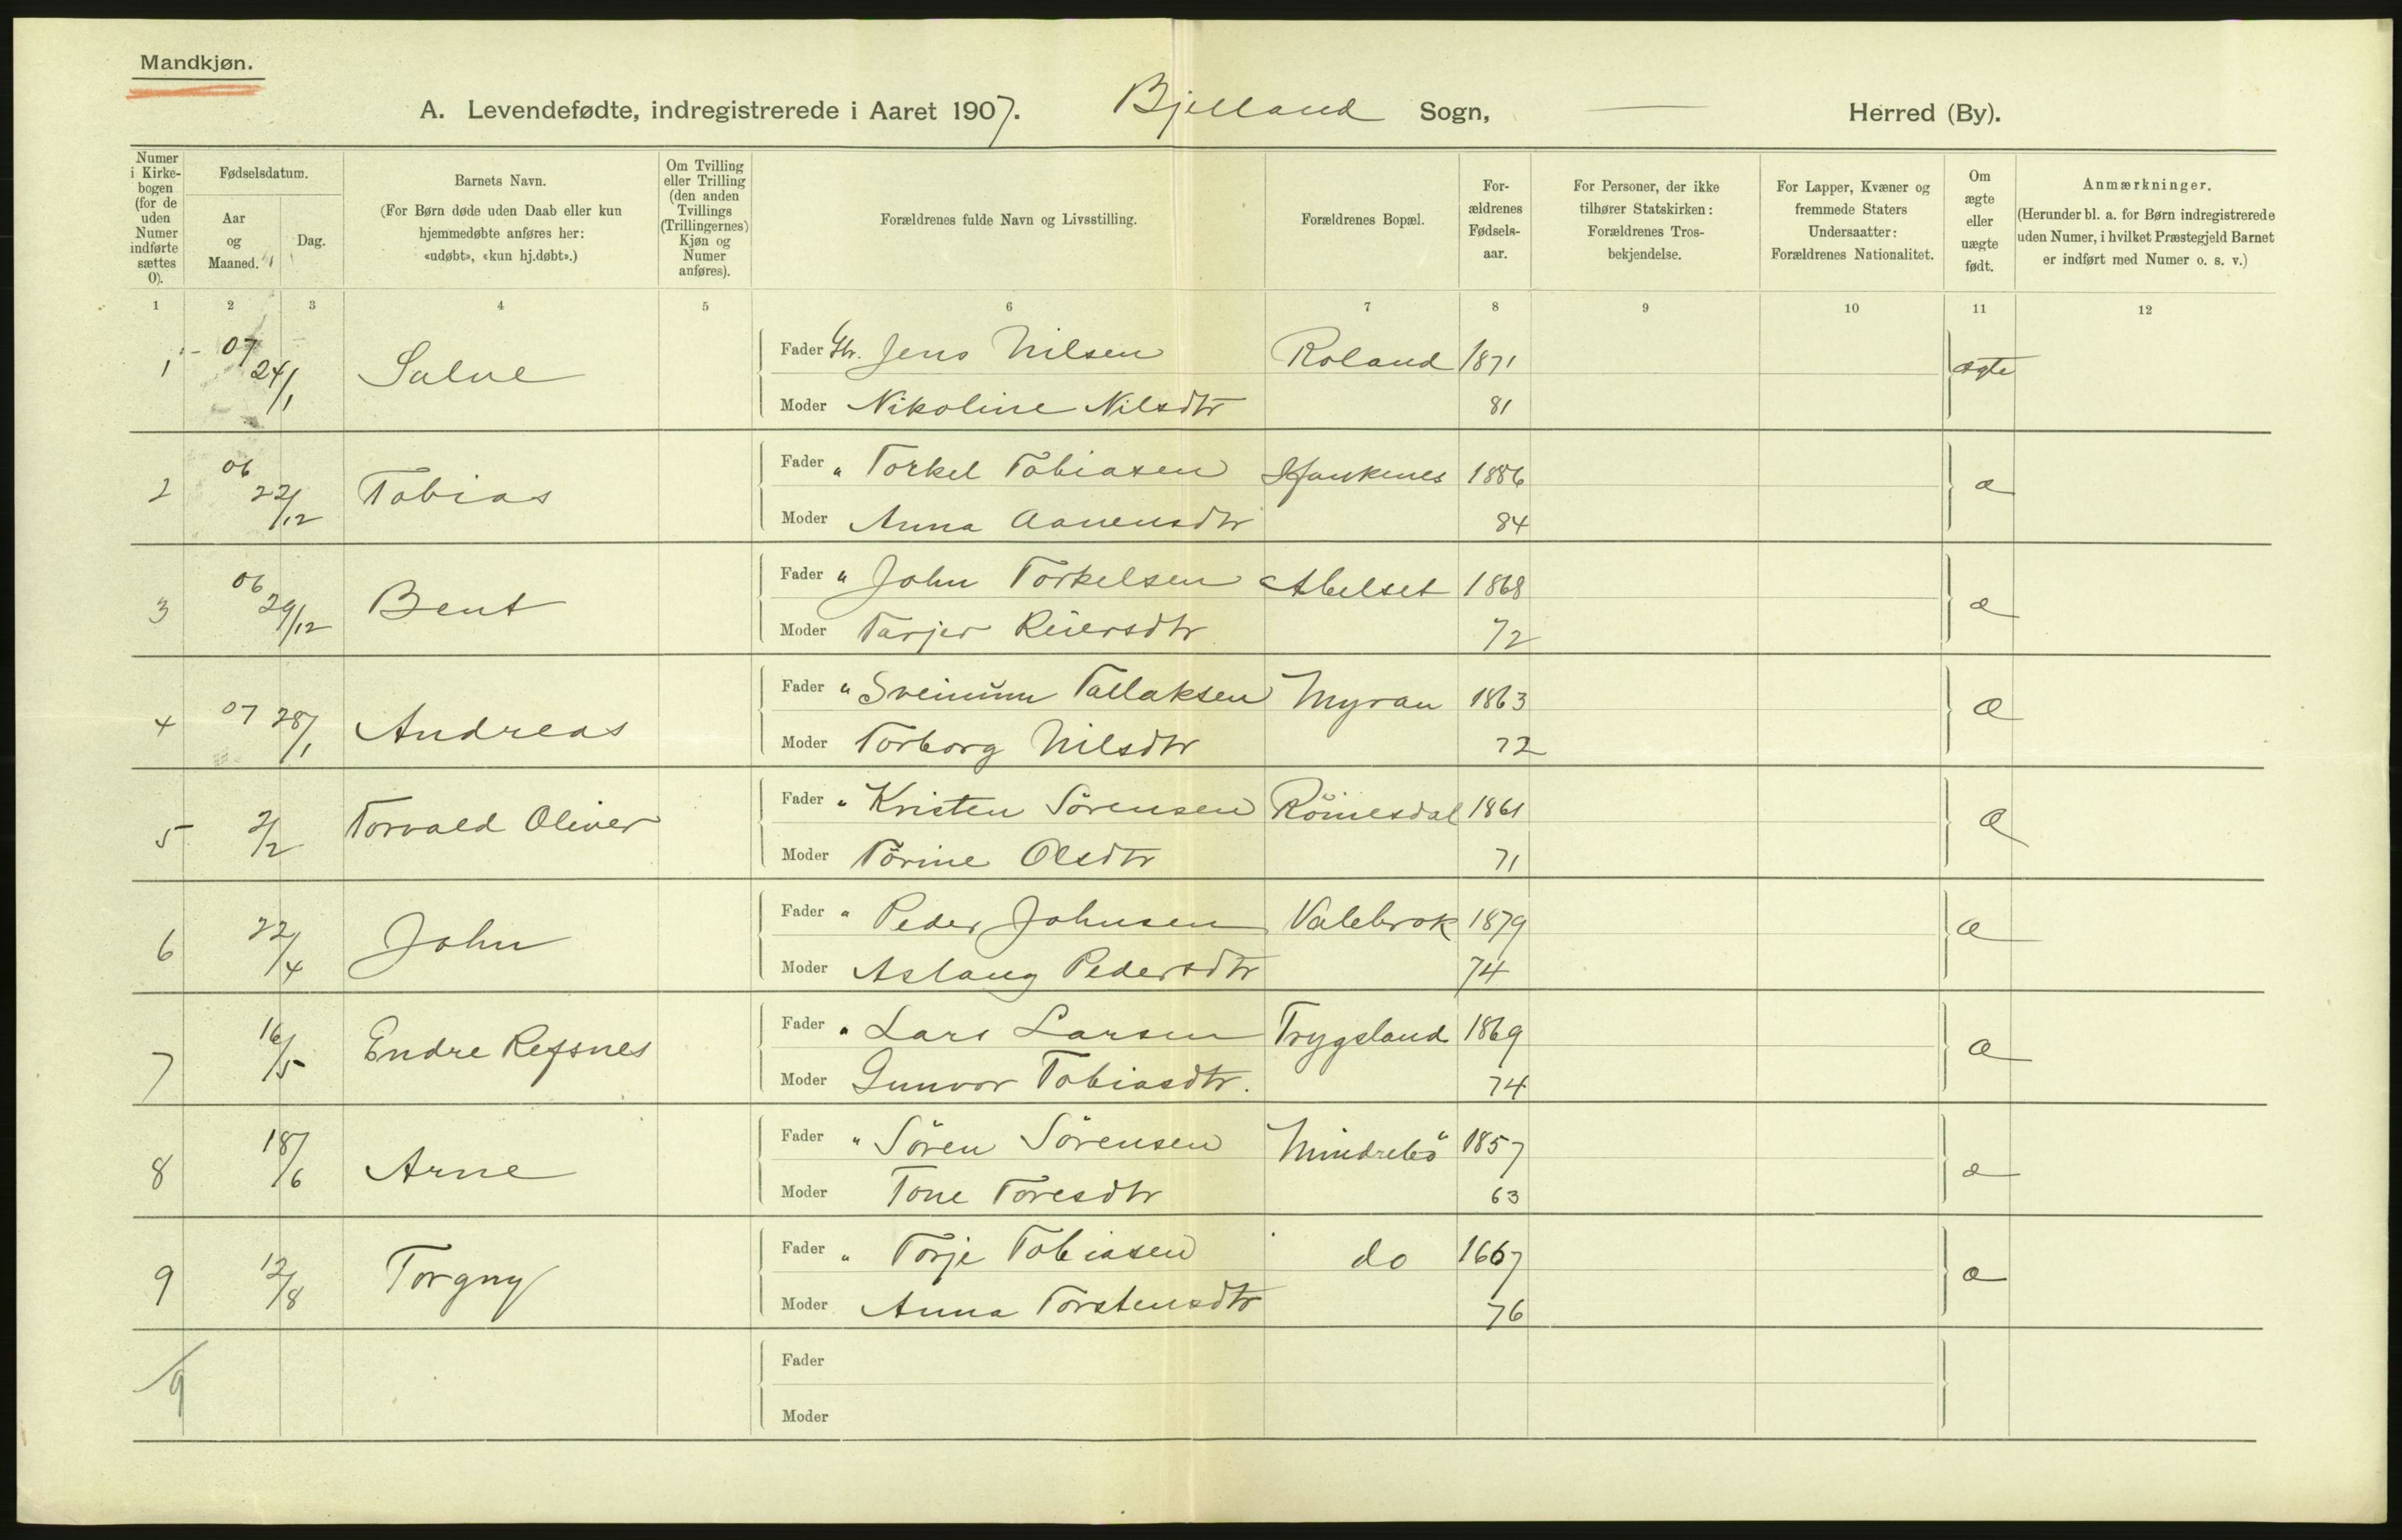 Mandkjøn.
A. Levendefødte, indregistrerede i Aaret 1907. Bjelland Sogn, Herred (By).
Numer i Kirkebogen (for de uden Numer indførte sættes 0).
Fødselsdatum.
Aar og Maaned.
Dag.
Barnets Navn.
(For Børn døde uden Daab eller kun hjemmedøbte anføres her: «udøbt», «kun hj.døbt».)
Om Tvilling eller Trilling (den anden Tvillings (Trillingernes) Kjøn og Numer anføres).
Forældrenes fulde Navn og Livsstilling.
Forældrenes Bopæl.
For-ældrenes Fødsels-aar.
For Personer, der ikke tilhører Statskirken: Forældrenes Tros-bekjendelse.
For Lapper, Kvæner og fremmede Staters Undersaatter: Forældrenes Nationalitet.
Om ægte eller uægte født.
Anmærkninger.
(Herunder bl. a. for Børn indregistrerede uden Numer, i hvilket Præstegjeld Barnet er indført med Numer o. s. v.)
1 2 3 4 5 6 7 8 9 10 11 12
1 07 24/1 Salve Fader Gbr. Jens Nilsen Roland 1871 ægte
Moder Nikoline Nilsdtr 81
2 06 22/12 Tobias Fader " Torkel Tobiasen 1886 æ
Moder Anna Aanensdtr 84
3 06 29/12 Bent Fader " John Torkelsen Abelset 1868 æ
Moder Tarjer Reiersdtr 72
4 07 28/1 Andreas Fader " Sveinum Tallaksen Myran 1863 æ
Moder Torborg Nilsdtr 72
5 2/2 Torvald Oliver Fader " Kristen Sörensen Römesdal 1861 æ
Moder Törine Olsdtr 71
6 22/4 John Fader " Peder Johnsen Valebrok 1879 æ
Moder Aslaug Pedersdtr 74
7 16/5 Endre Refsnes Fader " Lars Larsen Trygsland 1869 æ
Moder Gunvor Tobiasdtr. 74
8 18/6 Arne Fader " Sören Sörensen Mindrebö 1857 æ
Moder Tone Toresdtr 63
9 12/8 Torgny Fader " Torje Tobiasen do 1667 æ
Moder Anna Torstensdtr 76
/9 Fader
Moder